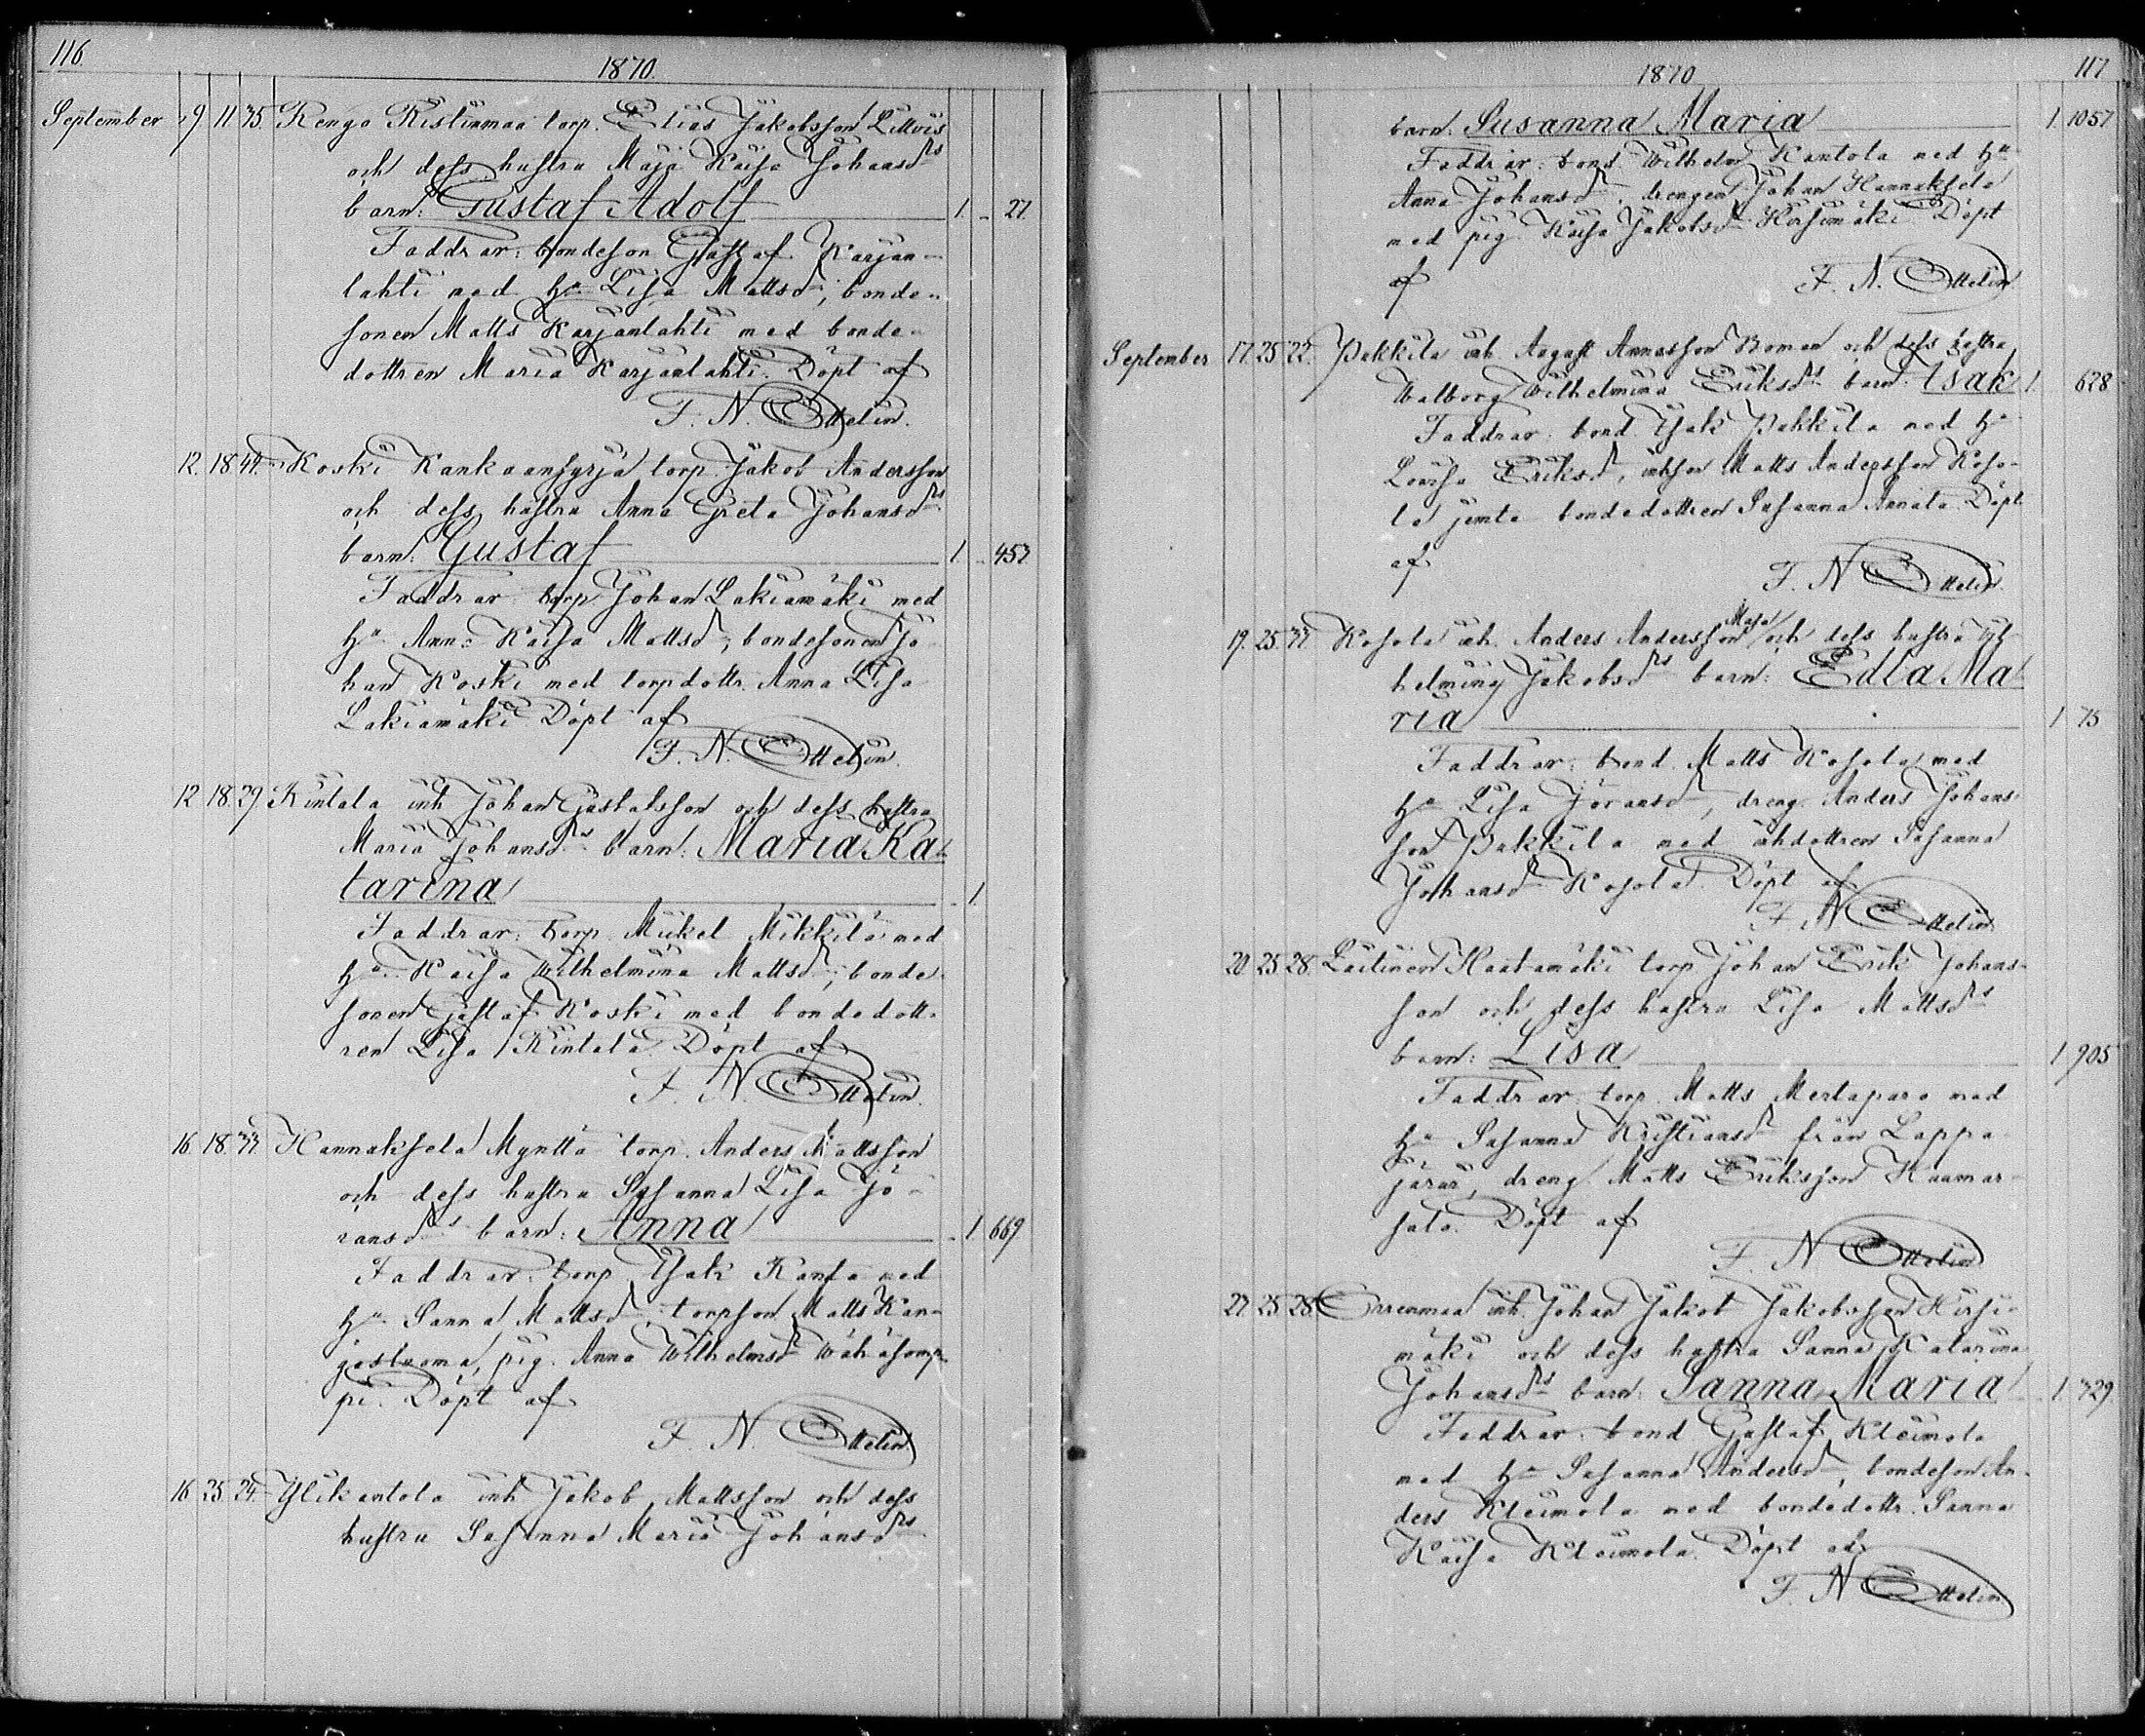 116.
1870.
September 9 11 35. Rengo Ristinmaa torp. Elias Jakobsson
och dess hustru Maja Kaisa Johansdrs
barn: Gustaf Adolf 1. 27.
Faddrar: bondeson Gustaf Karjan-
lahti med hu Lisa Mattsdr, bonde-
sonen Matts Karjanlahti med bonde-
dottren Maria Karjanlahti. Döpt af
F. N. Ottelin.
12. 18. 44. Koski Kankaansyrjä torp. Jakob Andersson
och dess hustru Anna Greta Johansdrs
barn: Gustaf 1. 457
Faddrar torp Johan Lakiamäki med
hu Anna Kaisa Mattsdr, bondesonen Jo
han Koski med torpdottr. Anna Lisa
Lakiamäki Döpt af
F. N. Ottelin.
12 18. 29. Kuntala inh Johan Gustafsson och dess hustru
Maria Johansdrs barn: Maria Ka-
tarina 1.
Faddrar: torp. Mikel Mikkilä med
hu Kaisa Wilhelmina Mattsdr, bonde-
sonen Gustaf Koski med bondedott-
ren Lisa Kuntala. Döpt af
F. N. Ottelin.
16. 18. 33. Hannuksela Mynttä torp. Anders Mattsson
och dess hustru Susanna Lisa Jö-
ransdrs barn: Anna 1 669
Faddrar: torp. Isak Kansa med
hu Sanna Mattsdr, torpson Matts Kan-
gastuoma, pig. Anna Wilhelmsdr Wähäsomp-
pi. Döpt af
F. N. Ottelin
16 25. 24. Ylikantola inh Jakob Mattsson och dess
hustru Susanna Maria Johansdrs
1870
117
barn: Susanna Maria 1. 1057
Faddrar: bond. Wilhelm Kantola med hu
Anna Johansdr, drengen Johan Hannuksela
med pig. Kaisa Jakobsdr Döpt
af F. N. Ottelin
September 17. 25 22. Pukkila inh. August Annasson Roman och dess hustru
Walborg Wilhelmina Eriksdrs barn: Isak 1. 628
Faddrar: bond. Isak Pukkila med hu
Lovisa Eriksdr, inhson Matts Andersson Koso-
la jemte bondedottren Susanna Annala. Döpt
af
F. N Ottelin.
19. 25. 33 Kosola inh. Anders Andersson och dess hustru Maja Wil-
helmina Jakobsdrs barn: Edla Ma-
ria 1 75
Faddrar: bond. Matts Kosola med
hu Lisa Jöransdr, dreng. Anders Johans-
son Pukkila med inhdottren Susanna
Johansdr Kosola. Döpt af
F. N Ottelin
20 25 28. Laitinen Haatamäki torp Johan Erik Johans-
son och dess hustru Lisa Mattsdrs
barn: Lisa 1 905
Faddrar: torp. Matts med
hu Susanna Kristiansdr från Lappa-
järvi, dreng. Matts Eriksson
Döpt af
F. N Ottelin
27. 25 28. Orrenmaa inh. Johan Jakob Jakobsson Hirsi-
mäki och dess hustru Sanna Katarina
Johansdrs barn: Sanna Maria 1. 329.
Faddrar: bond Gustaf Kleimola
med hu Susanna Andersdr, bondeson An-
ders Kleimola med bondedottr. Sanna
Kaisa Kleimola. Döpt af
F. N Ottelin